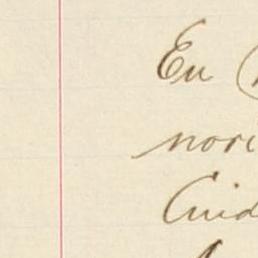 En
nori
Cuid